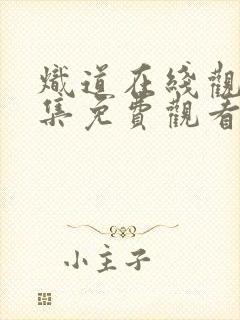 熾道在綫觀
集免費觀看
小主子